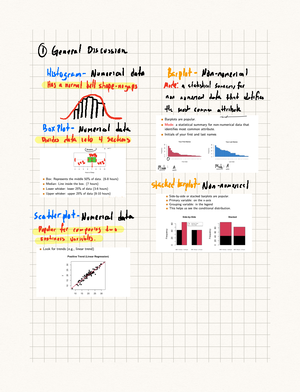 ① General Discussion
Histogram- Numerical data
Has a normal bell shape-no gaps
Box Plot- Numerical data
Divides data into 4 sections
Box: Represents the middle 50% of data
Median: Line inside the box
Lower whisker: lower 25% of data
Upper whisker: upper 25% of data
Scatterplot- Numerical data
Popular for comparing two
continuous variables.
Look for trends (e.g., linear trend)
Positive Trend (Linear Regression)
Barplot- Non-numerical
Mode: a statistical summary for
non numerical data that identifies
the most common attribute
Barplots are popular.
Mode: a statistical summary for non-numerical data that
identifies most common attribute
Initials of your first and last names
Stacked barplot- Non-numerical
Side-by-side or stacked barplots are popular
Primary variable: on the x-axis
Grouping variable: in the legend
This helps us see the conditional distribution.
Side-by-Side
Stacked